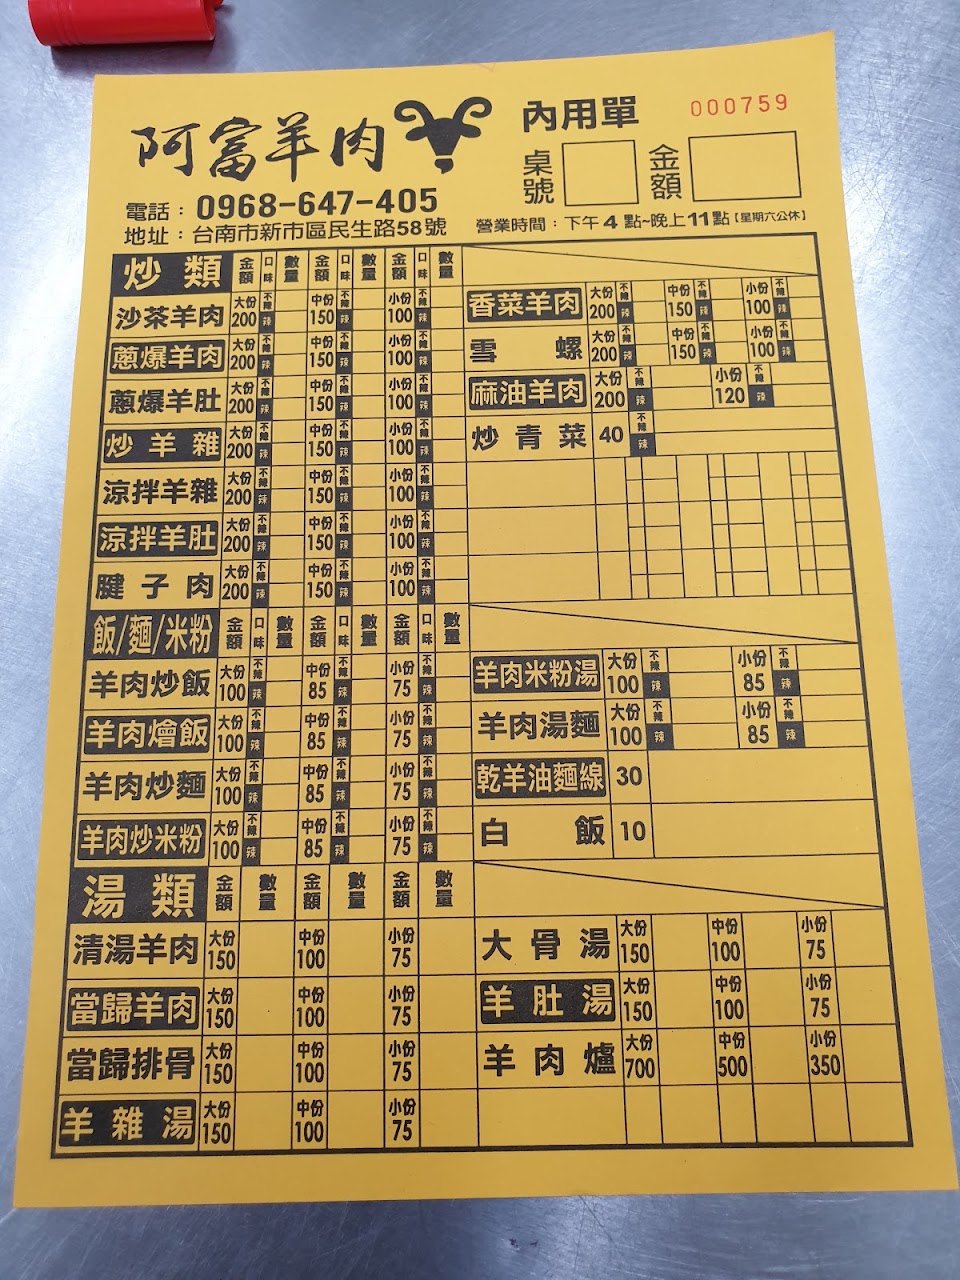 阿富羊肉
內用單
000759
桌號
金額
電話：0968-647-405
地址：台南市新市區民生路58號
營業時間：下午4點~晚上11點【星期六公休】
炒類 金額 口味 數量 金額 口味 數量 金額 口味 數量
沙茶羊肉 大份200 不辣 辣 中份150 不辣 辣 小份100 不辣 辣
蔥爆羊肉 大份200 不辣 辣 中份150 不辣 辣 小份100 不辣 辣
蔥爆羊肚 大份200 不辣 辣 中份150 不辣 辣 小份100 不辣 辣
炒羊雜 大份200 不辣 辣 中份150 不辣 辣 小份100 不辣 辣
涼拌羊雜 大份200 不辣 辣 中份150 不辣 辣 小份100 不辣 辣
涼拌羊肚 大份200 不辣 辣 中份150 不辣 辣 小份100 不辣 辣
腱子肉 大份200 不辣 辣 中份150 不辣 辣 小份100 不辣 辣
香菜羊肉 大份200 不辣 辣 中份150 不辣 辣 小份100 不辣 辣
雪螺 大份200 不辣 辣 中份150 不辣 辣 小份100 不辣 辣
麻油羊肉 大份200 不辣 辣 小份120 不辣 辣
炒青菜 40 不辣 辣
飯/麵/米粉 金額 口味 數量 金額 口味 數量 金額 口味 數量
羊肉炒飯 大份100 不辣 辣 中份85 不辣 辣 小份75 不辣 辣
羊肉燴飯 大份100 不辣 辣 中份85 不辣 辣 小份75 不辣 辣
羊肉炒麵 大份100 不辣 辣 中份85 不辣 辣 小份75 不辣 辣
羊肉炒米粉 大份100 不辣 辣 中份85 不辣 辣 小份75 不辣 辣
羊肉米粉湯 大份100 不辣 辣 小份85 不辣 辣
羊肉湯麵 大份100 不辣 辣 小份85 不辣 辣
乾羊油麵線 30
白飯 10
湯類 金額 數量 金額 數量 金額 數量
清湯羊肉 大份150 中份100 小份75
當歸羊肉 大份150 中份100 小份75
當歸排骨 大份150 中份100 小份75
羊雜湯 大份150 中份100 小份75
大骨湯 大份150 中份100 小份75
羊肚湯 大份150 中份100 小份75
羊肉爐 大份700 中份500 小份350